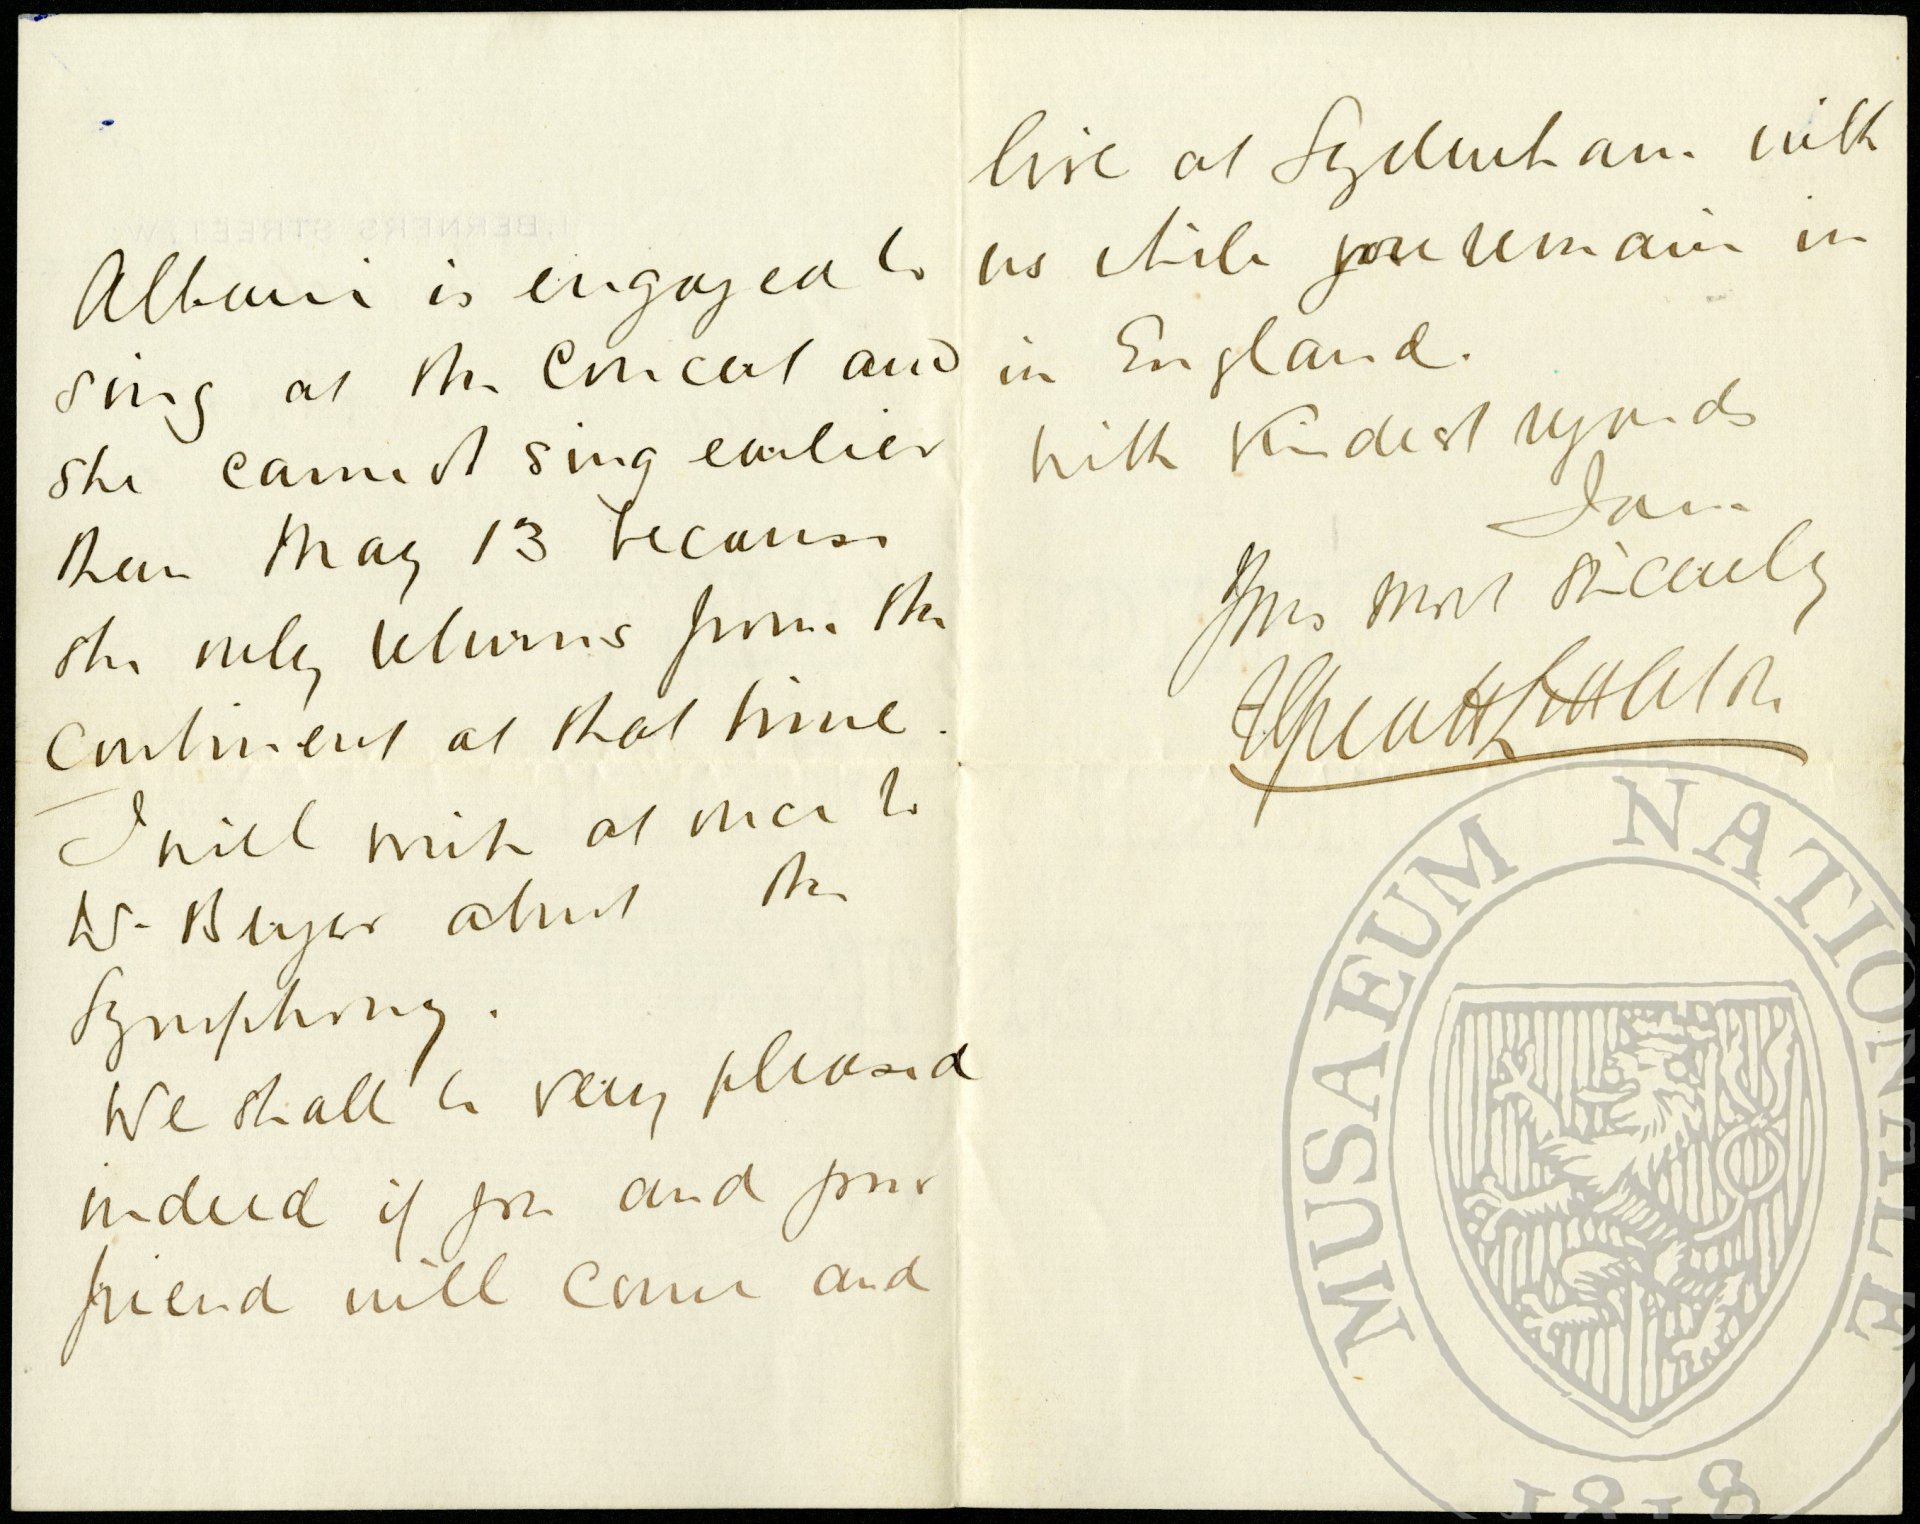 Albani is engaged to
sing at the Concert and
she cannot sing earlier
than May 13 because
she only returns from the
continent at that time.
I will write at once to
W. Berger about the
Symphony.
We shall be very pleased
indeed if you and your
friend will come and
live at Sydenham with
us while you remain in
in England.
With Kindest regards
I am
Yrs most sincerely
Alfred H Littleton
1. BERNERS STREET. W.
MUSAEUM NATIONALE
1818